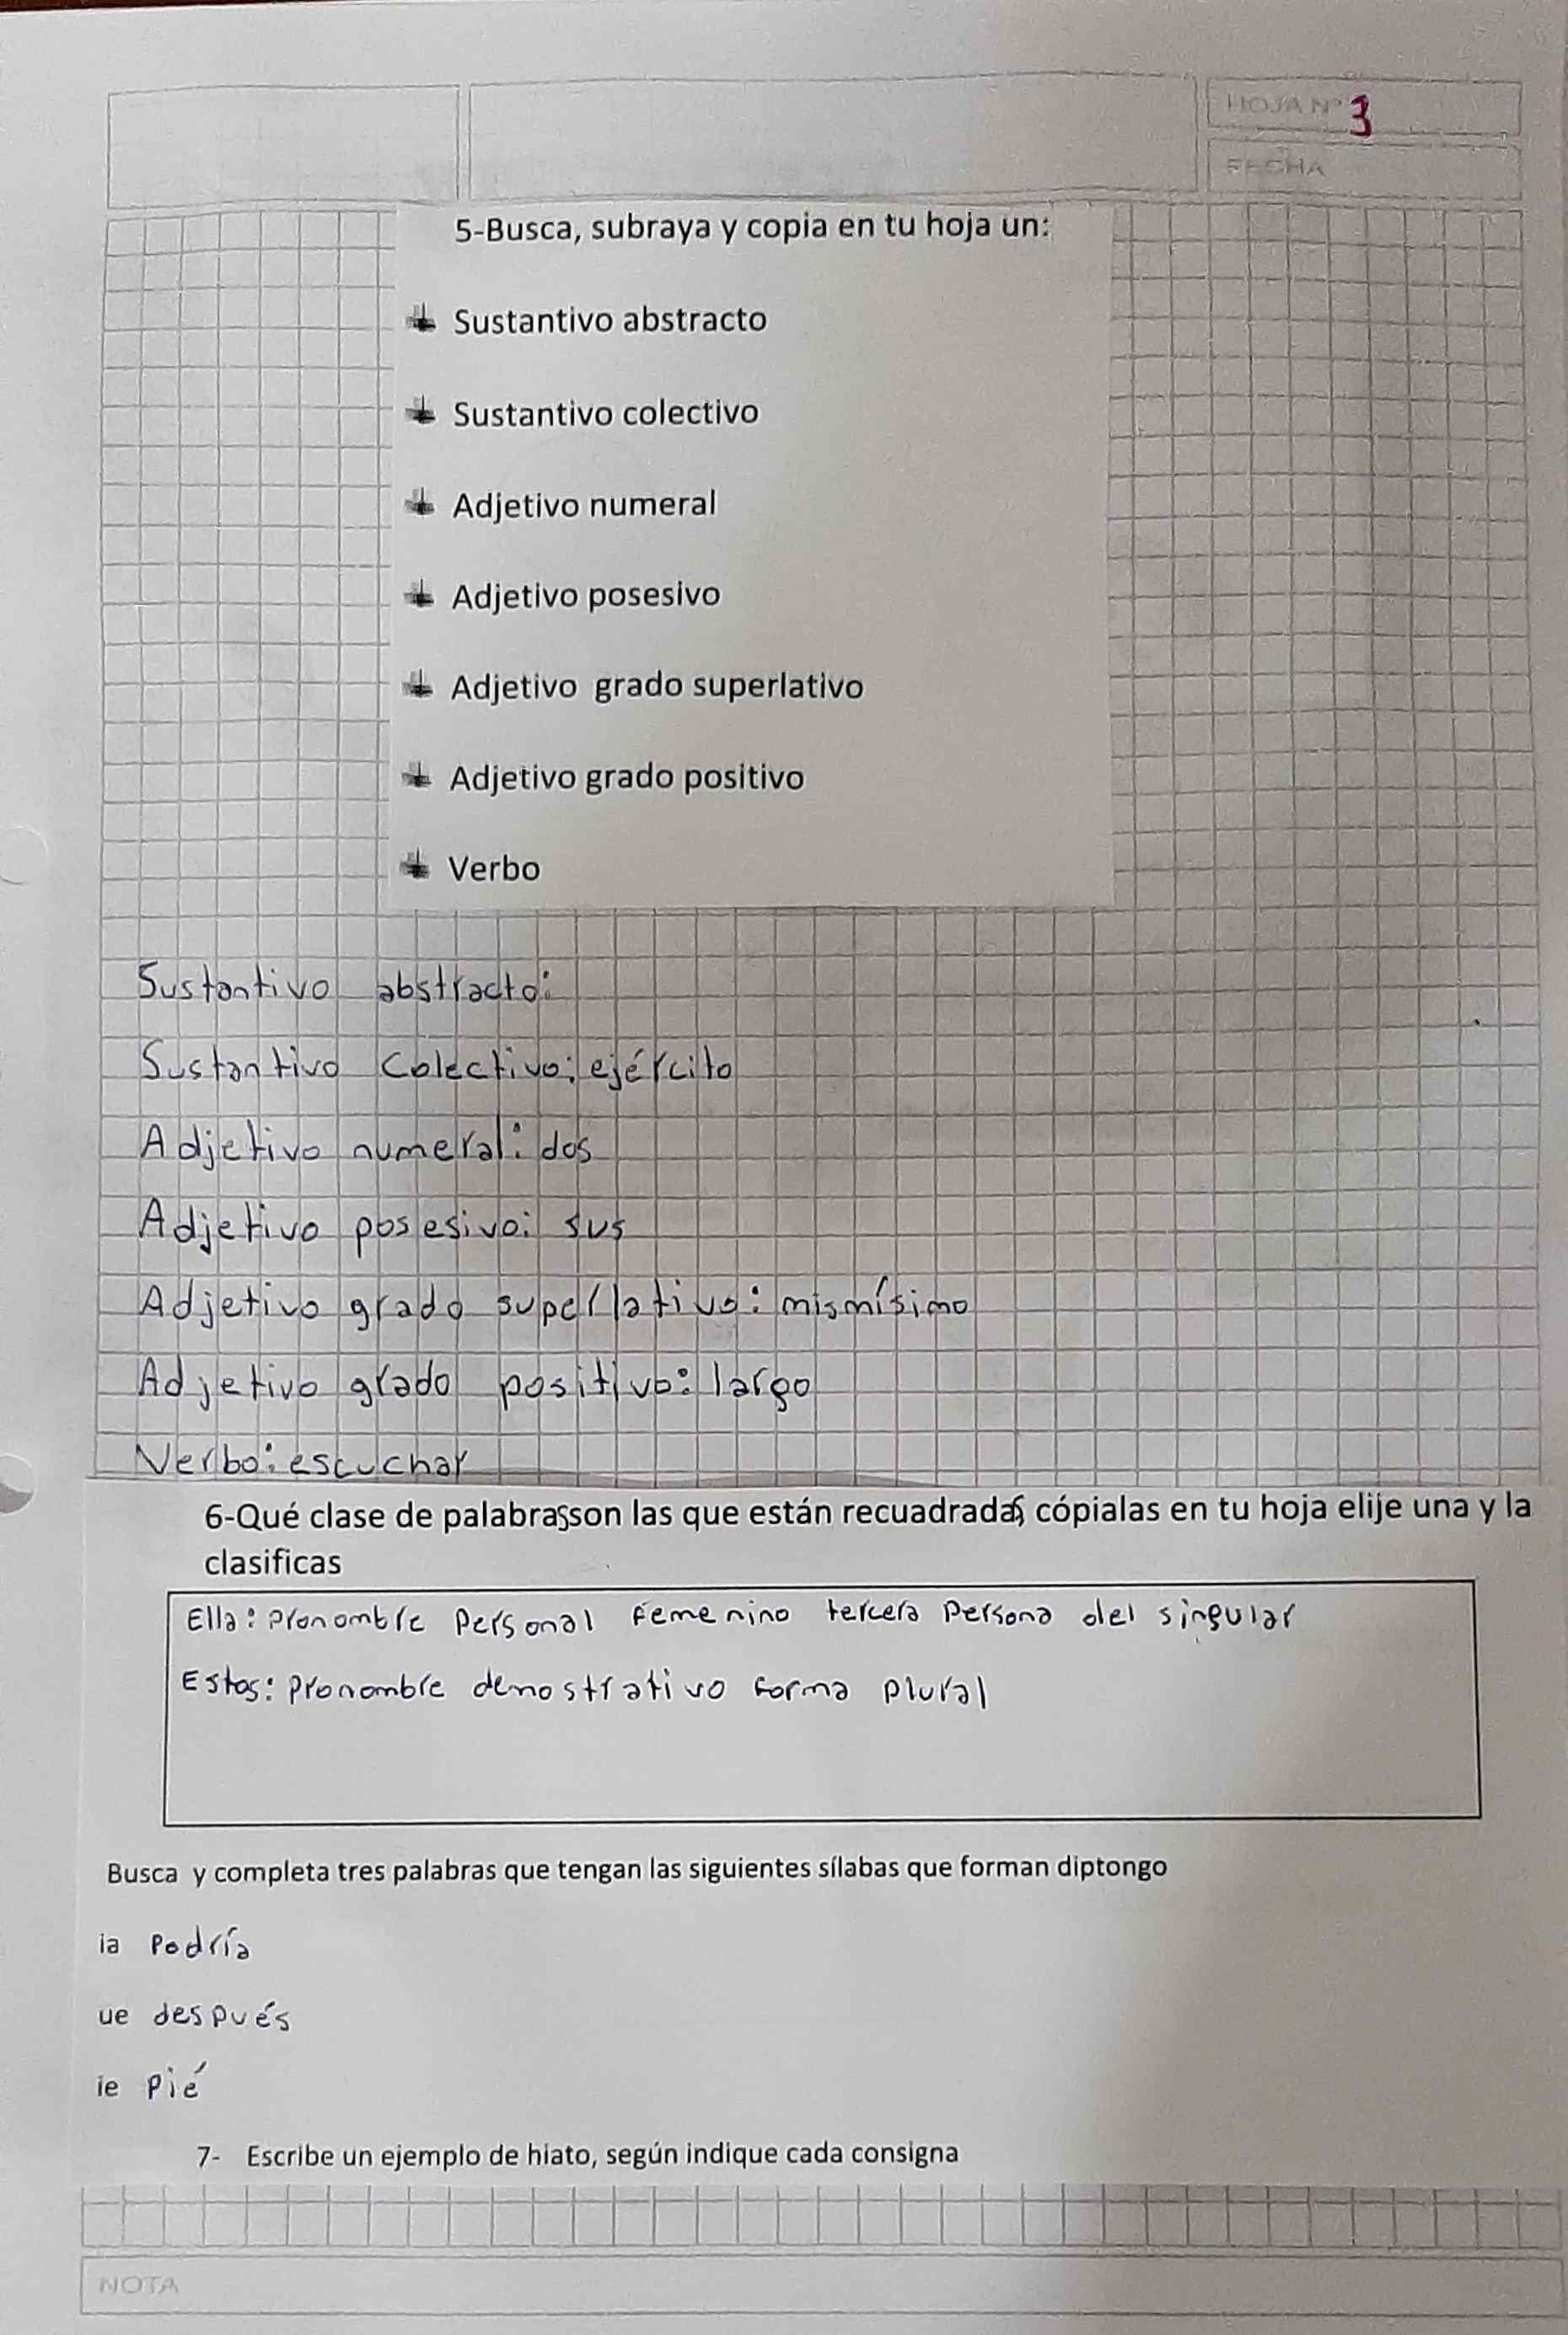 HOJA Nº 3
FECHA
5-Busca, subraya y copia en tu hoja un:
Sustantivo abstracto
Sustantivo colectivo
Adjetivo numeral
Adjetivo posesivo
Adjetivo grado superlativo
Adjetivo grado positivo
Verbo
Sustantivo abstracto:
Sustantivo Colectivo: ejército
Adjetivo numeral: dos
Adjetivo posesivo: sus
Adjetivo grado superlativo: mismísimo
Adjetivo grado positivo: largo
Verbo: escuchar
6-Qué clase de palabras son las que están recuadradas, cópialas en tu hoja elije una y la
clasificas
Ella: pronombre Personal Femenino tercera Persona del singular
Estos: pronombre demostrativo forma plural
Busca y completa tres palabras que tengan las siguientes sílabas que forman diptongo
ia Podría
ue después
ie Pié
7- Escribe un ejemplo de hiato, según indique cada consigna
NOTA